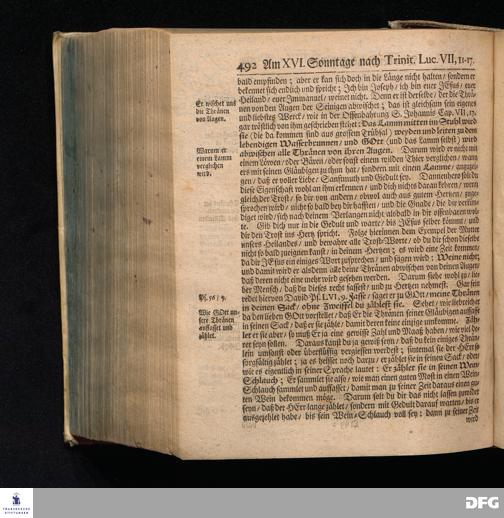 492 Am XVI. Sonntage nach Trinit. Luc. VII, 11-17.
bald empfinden; aber er kan sich doch in die Länge nicht halten / sondern er
bekennet sich endlich und spricht; Ich bin Joseph / ich bin euer JEsus / euer
Heiland / euer Immanuel / weinet nicht. Denn er ist derselbe / der die Thrä-
nen von den Augen der Seinigen abwischet; das ist gleichsam sein eigenes
und liebstes Werck / wie in der Offenbahrung S. Johannis Cap. VII, 17.
gar tröstlich von ihm geschrieben stehet: Das Lamm mitten im Stuhl wird
sie (die da kommen sind aus grossem Trübsal) weyden und leiten zu dem
lebendigen Wasserbrunnen / und GOtt (und das Lamm selbst) wird
abwischen alle Thränen von ihren Augen. Darum wird er nicht mit
einem Löwen / oder Bären / oder sonst einem wilden Thier verglichen / wann
ers mit seinen Gläubigen zu thun hat / sondern mit einem Lamme / anzuzei-
gen / daß er voller Liebe / Sanfftmuth und Gedult sey. Dannenhero solt du
diese Eigenschafft wohl an ihm erkennen / und dich nichts daran kehren / wenn
gleich der Trost / so dir von andern / obwol auch aus gutem Hertzen / zuge-
sprochen wird / nicht so bald bey dir hafften / und die Gnade / die dir verkün-
diget wird / sich nach deinem Verlangen nicht alsbald in dir offenbaren wol-
te. Gib dich nur in die Gedult und warte / bis JEsus selber kömmt / und
dir den Trost ins Hertz spricht. Folge hierinnen dem Exempel der Mutter
unsers Heilandes / und bewahre alle Trost-Worte / ob du dir schon dieselbe
nicht so bald zueignen kanst / in deinem Hertzen; es wird eine Zeit kommen /
da dir JEsus ein einiges Wort zusprechen / und sagen wird: Weine nicht;
und damit wird er alsdenn alle deine Thränen abwischen von deinen Augen /
daß deren nicht eine mehr wird gesehen werden. Darum siehe wohl zu / lie-
ber Mensch / daß du dieses recht fassest / und zu Hertzen nehmest. Gar fein
redet hiervon David Ps. LVI, 9. Fasse / saget er zu GOtt / meine Thränen
in deinen Sack / ohne Zweiffel du zählest sie. Sehet / wie liebreicher
da den lieben GOtt vorstellet / daß Er die Thränen seiner Gläubigen auffasse
in seinen Sack / daß er sie zähle / damit deren keine einzige umkomme. Zäh-
let er sie aber / so muß Er ja eine gewisse Zahl und Maaß haben / wie viel de-
rer seyn sollen. Daraus kanst du ja gewiß seyn / daß du kein einiges Thrän-
lein umsonst oder überflüssig vergiessen werdest; sintemal sie der HErr so
sorgfältig zählet; ja es heisset noch darzu / er zählet sie in seinen Sack / oder
wie es eigentlich in seiner Sprache lautet: Er zähler sie in seinen Wein-
Schlauch; Er sammlet sie also / wie man einen guten Most in einen Wein-
Schlauch sammlet und auffasset / damit man zu seiner Zeit daraus einen gu-
ten Wein bekommen möge. Darum solt du dir das nicht lassen zuwider
seyn / daß der HErr lange zählet / sondern mit Gedult darauf warten / bis er
ausgezehlet habe / bis sein Wein-Schlauch voll sey; dann zu seiner Zeit
wird
Er wischet uns
die Thränen
von Augen.
Warum er
einem Lamm
verglichen
wird.
Ps. 56 / 9.
Wie GOtt un-
sere Thränen
auffasset und
zählet.
FRANCKESCHE
STIFTUNGEN
DFG